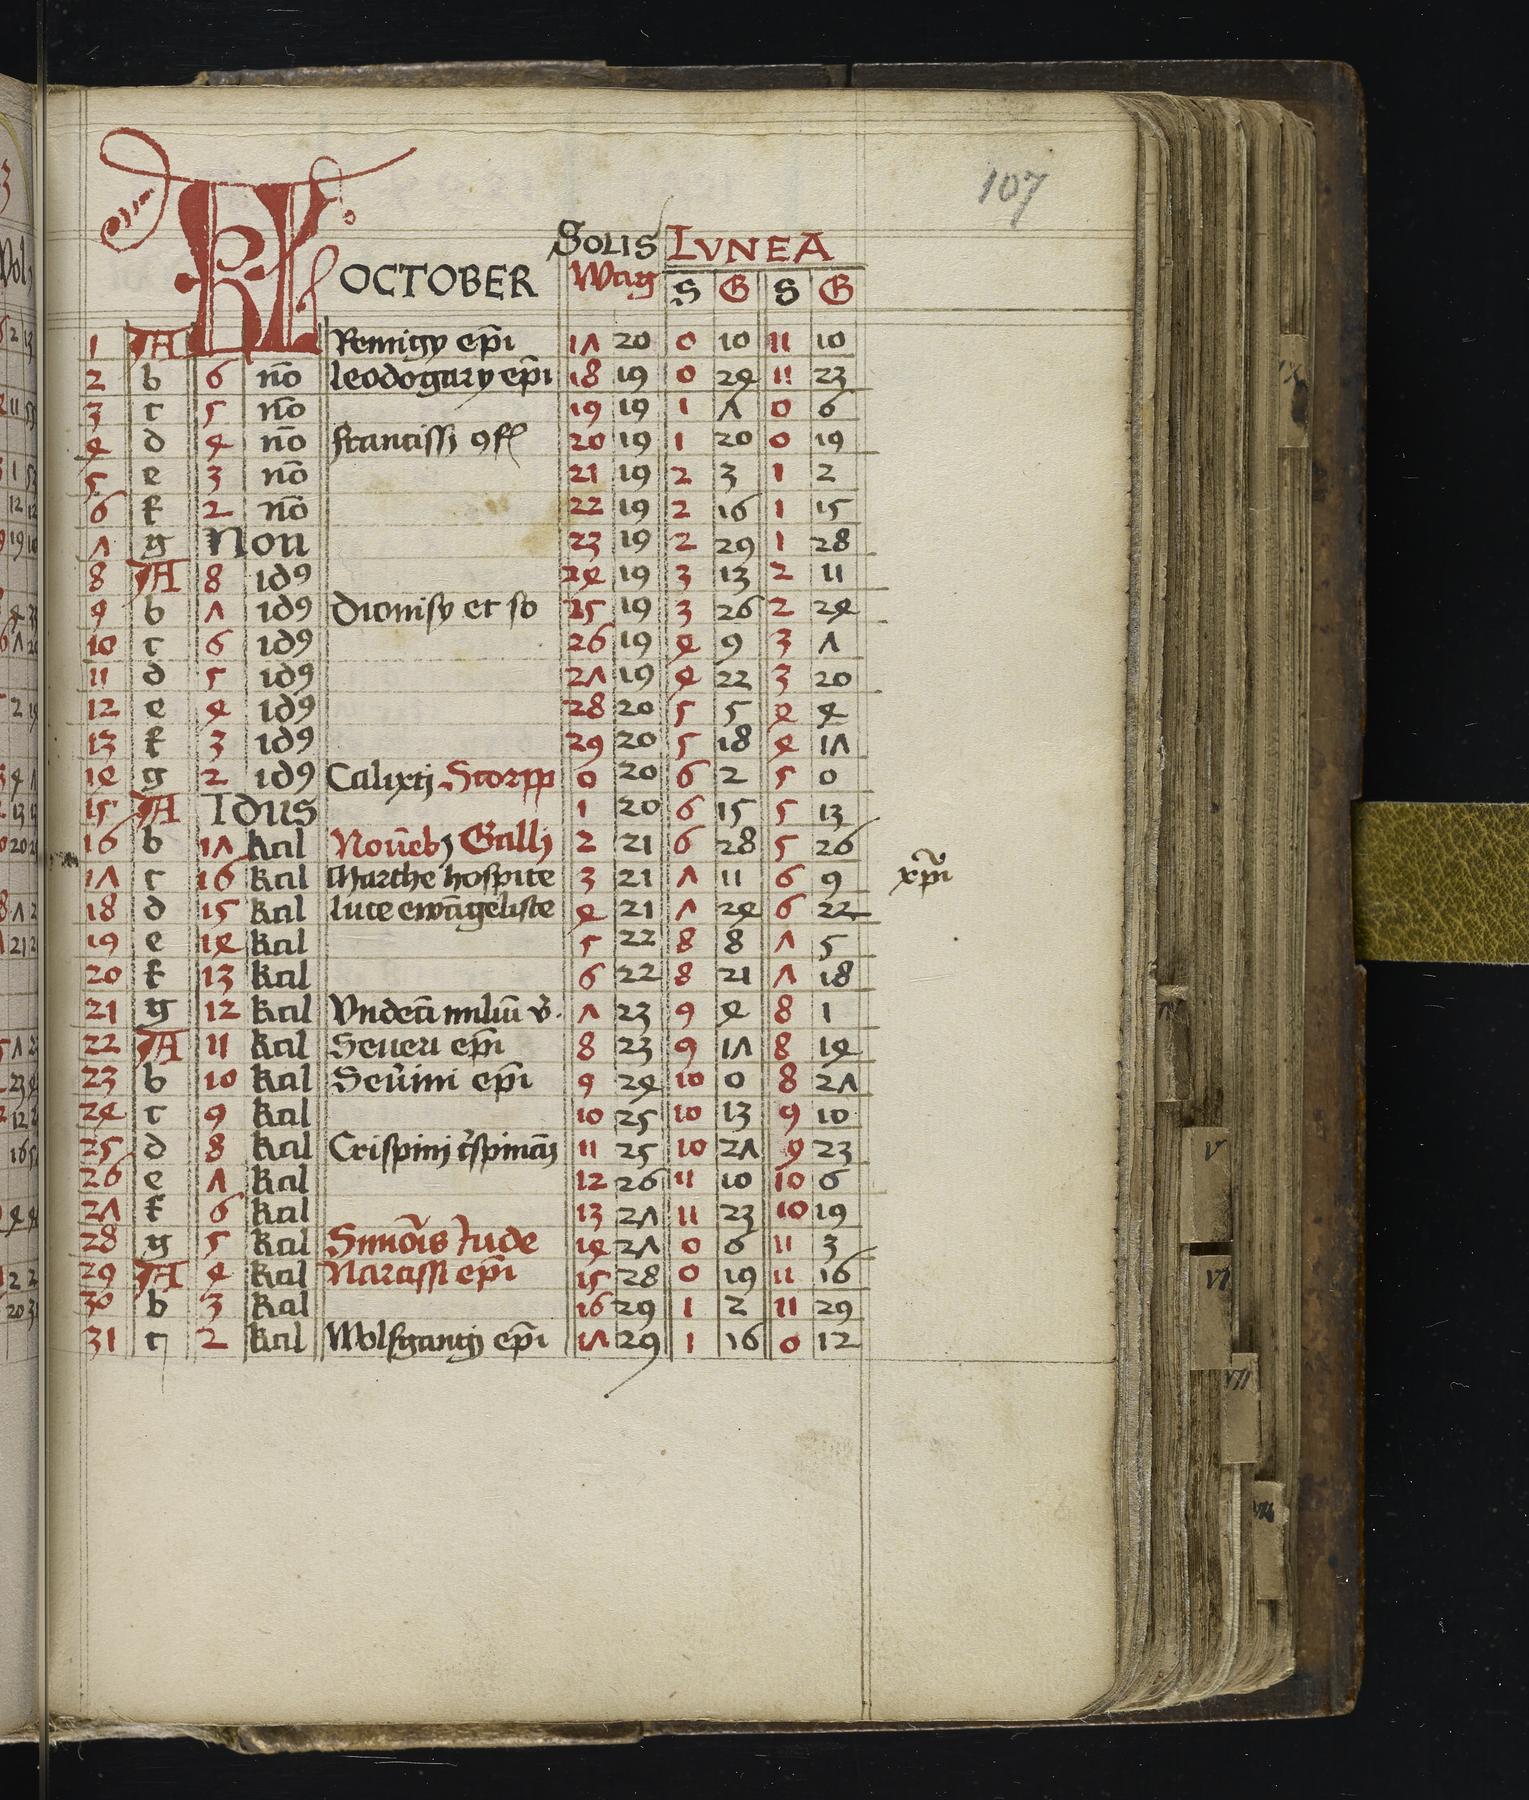 107
KL OCTOBER SOLIS LVNEA
Wag S G S G
1 A Remigy epi 17 20 0 10 11 10
2 b 6 no leodogary epi 18 19 0 24 11 23
3 c 5 no 19 19 1 7 0 6
4 d 4 no francissi 9f 20 19 1 20 0 19
5 e 3 no 21 19 2 3 1 2
6 f 2 no 22 19 2 16 1 15
7 g Non 23 19 2 29 1 28
8 A 8 id9 24 19 3 13 2 11
9 b 7 id9 Dionisy et so 25 19 3 26 2 24
10 c 6 id9 26 19 4 9 3 7
11 d 5 id9 27 19 4 22 3 20
12 e 4 id9 28 20 5 5 4 4
13 f 3 id9 29 20 5 18 4 17
14 g 2 id9 Calixtj Scorpp 0 20 6 2 5 0
15 A Idus 1 20 6 15 5 13
16 b 17 kal Nouebz Gallj 2 21 6 28 5 26
17 c 16 kal Marthe hospite 3 21 7 11 6 9 xpi
18 d 15 kal luce ewageliste 4 21 7 24 6 22
19 e 14 kal 5 22 8 8 7 5
20 f 13 kal 6 22 8 21 7 18
21 g 12 kal Vndeci miliu v. 7 23 9 4 8 1
22 A 11 kal Seueri epi 8 23 9 17 8 14
23 b 10 kal Seuini epi 9 24 10 0 8 27
24 c 9 kal 10 25 10 13 9 10
25 d 8 kal Crispinj cspinaj 11 25 10 27 9 23
26 e 7 kal 12 26 11 10 10 6
27 f 6 kal 13 27 11 23 10 19
28 g 5 kal Simois Jude 14 27 0 6 11 3
29 A 4 kal Narcissi epi 15 28 0 19 11 16
30 b 3 kal 16 29 1 2 11 29
31 c 2 kal Wolfgangj epi 17 29 1 16 0 12
V
VI
VII